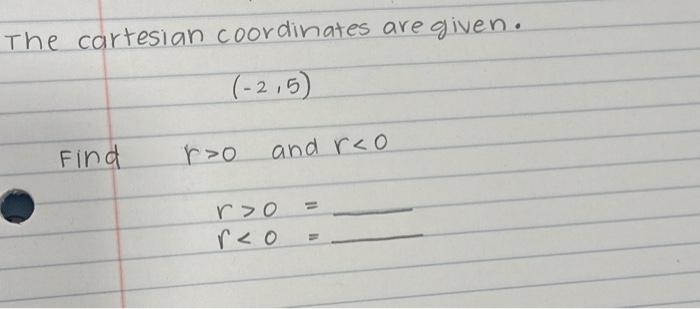 The cartesian coordinates are given.
(-2,5)
Find r>0 and r<0
r>0 = ____
r<0 = ____